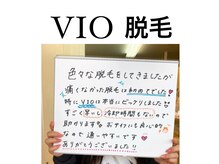 VIO 脱毛
色々な脱毛をしてきましたが
痛くなかった脱毛は初めてでした
特にVIOは本当にビックリしました
すごく早いし冷却時間もないので
助かります おサイトも良心的
なので通いやすいです
ありがとうございました